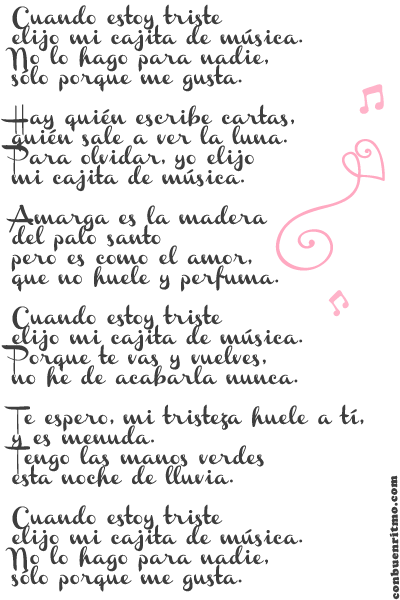 Cuando estoy triste
elijo mi cajita de música.
No lo hago para nadie,
sólo porque me gusta.
Hay quién escribe cartas,
quién sale a ver la luna.
Para olvidar, yo elijo
mi cajita de música.
Amarga es la madera
del palo santo
pero es como el amor,
que no huele y perfuma.
Cuando estoy triste
elijo mi cajita de música.
Porque te vas y vuelves,
no he de acabarla nunca.
Te espero, mi tristeza huele a tí,
y es menuda.
Tengo las manos verdes
esta noche de lluvia.
Cuando estoy triste
elijo mi cajita de música.
No lo hago para nadie,
sólo porque me gusta.
conbuenritmo.com